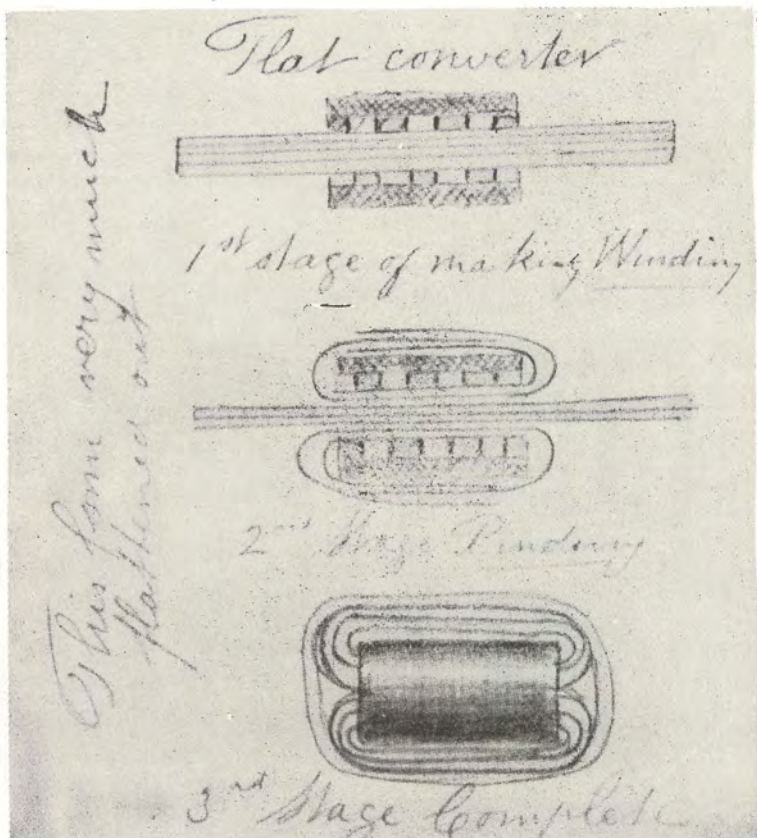 Flat converter
1st stage of making Winding
2nd Stage
3rd Stage Complete
This form very much
flattened out